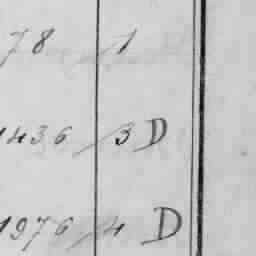 78 1
1436 3 D
1976 4 D